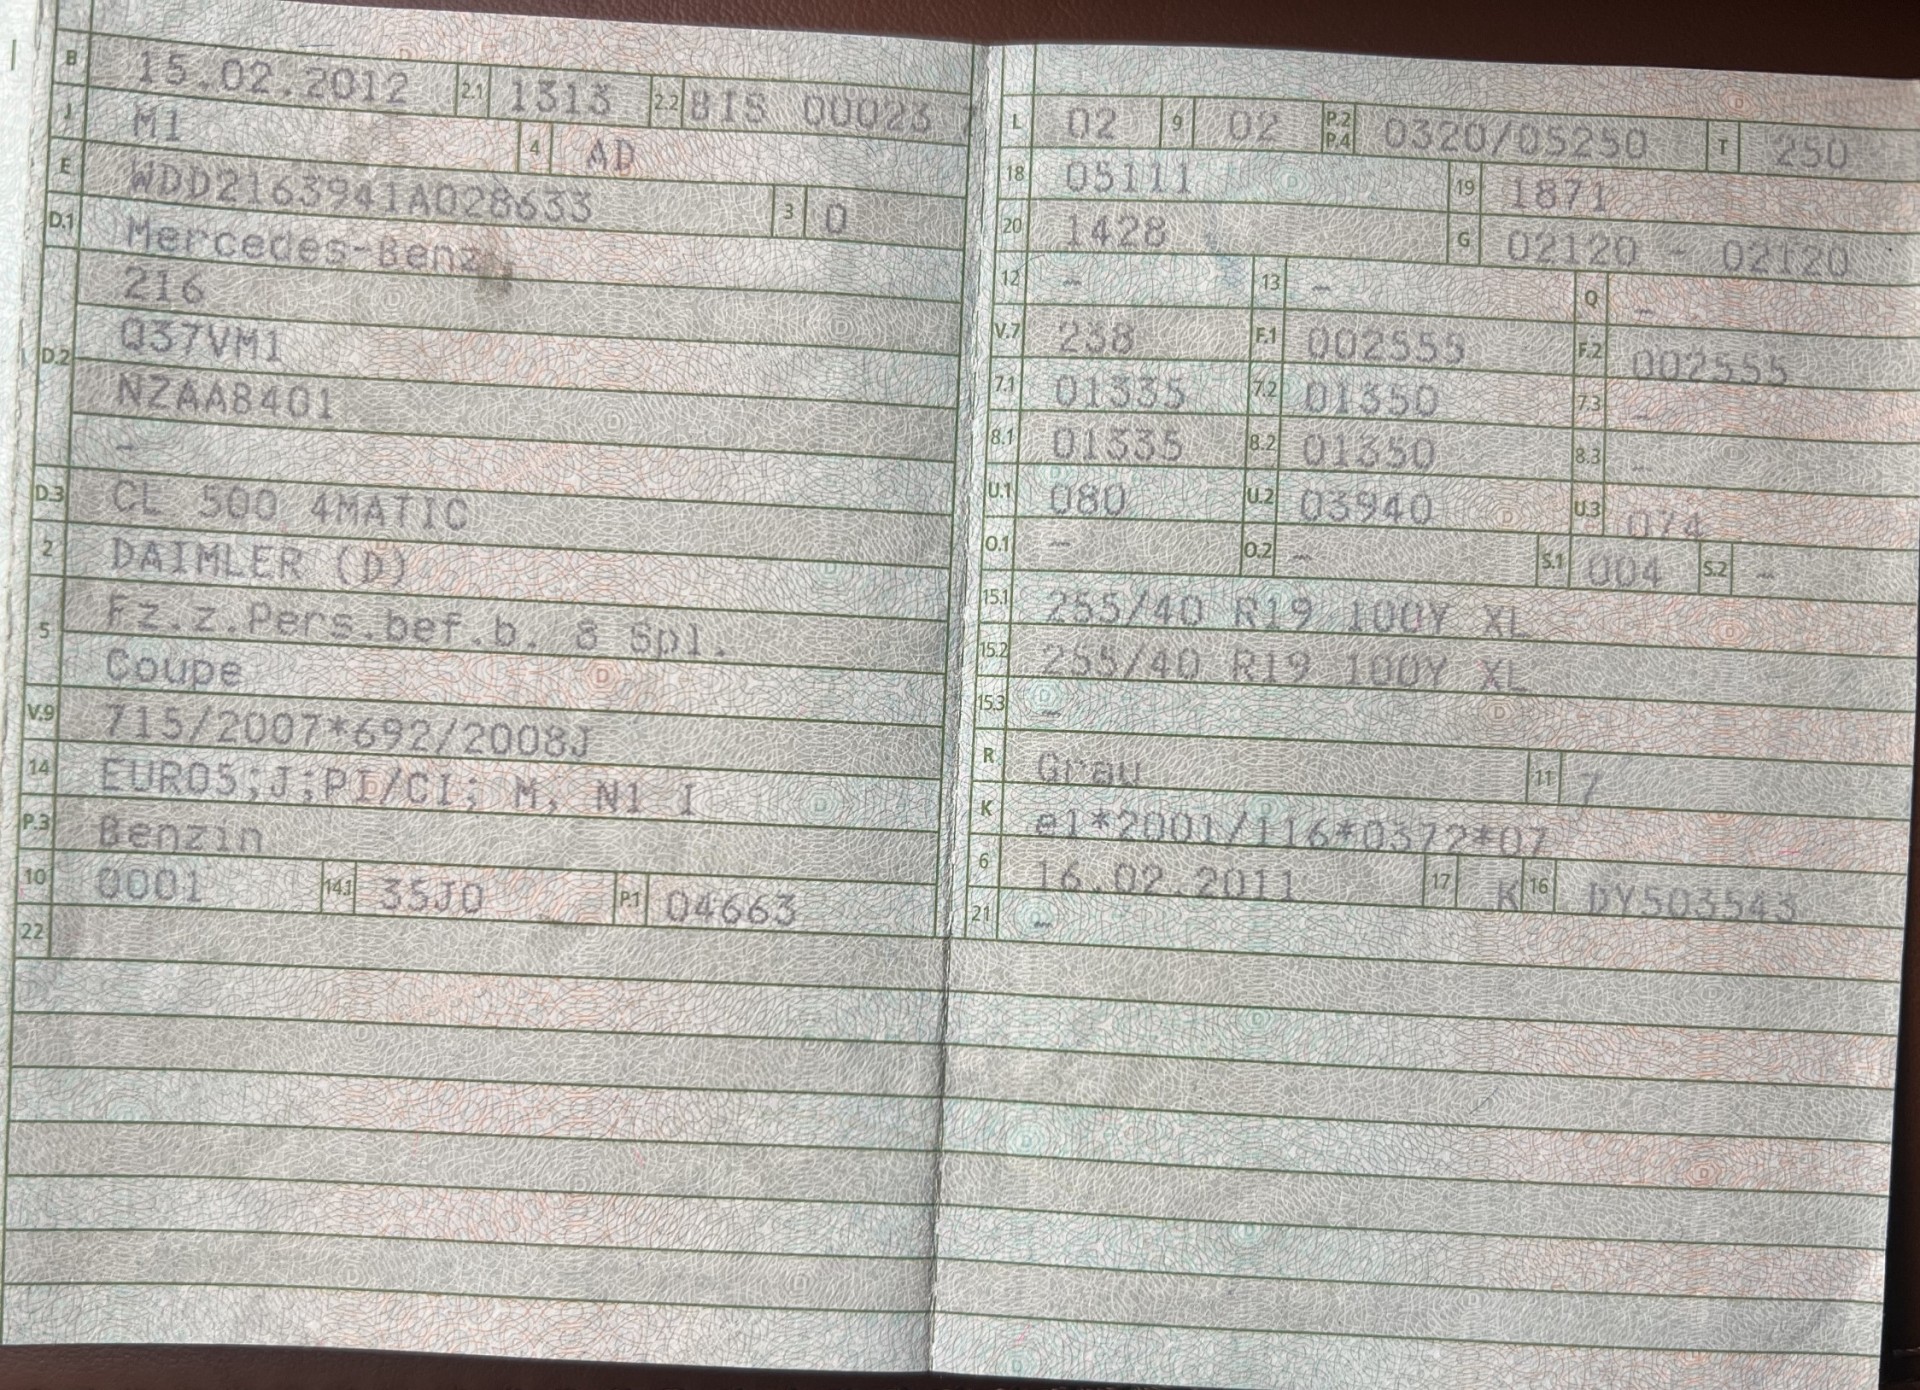 B 15.02.2012 2.1 1313 2.2 BIS 00023 7
J M1 4 AD
E WDD2163941A028633 3 0
D.1 Mercedes-Benz
D.2 216
Q37VM1
NZAAB401
-
D.3 CL 500 4MATIC
2 DAIMLER (D)
5 Fz.z.Pers.bef.b. 8 Spl.
Coupe
V.9 715/2007*692/2008J
14 EURO5;J;PI/CI; M, N1 I
P.3 Benzin
10 0001 14.1 35J0 P.1 04663
22
L 02 9 02 P.2 P.4 0320/05250 T 250
18 05111 19 1871
20 1428 G 02120 - 02120
12 - 13 - Q -
V.7 238 F.1 002555 F.2 002555
7.1 01335 7.2 01350 7.3 -
8.1 01335 8.2 01350 8.3 -
U.1 080 U.2 03940 U.3 074
O.1 - O.2 - S.1 004 S.2 -
15.1 255/40 R19 100Y XL
15.2 255/40 R19 100Y XL
15.3 -
R Grau 11 7
K e1*2001/116*0372*07
6 16.02.2011 17 K 16 DY503543
21 -